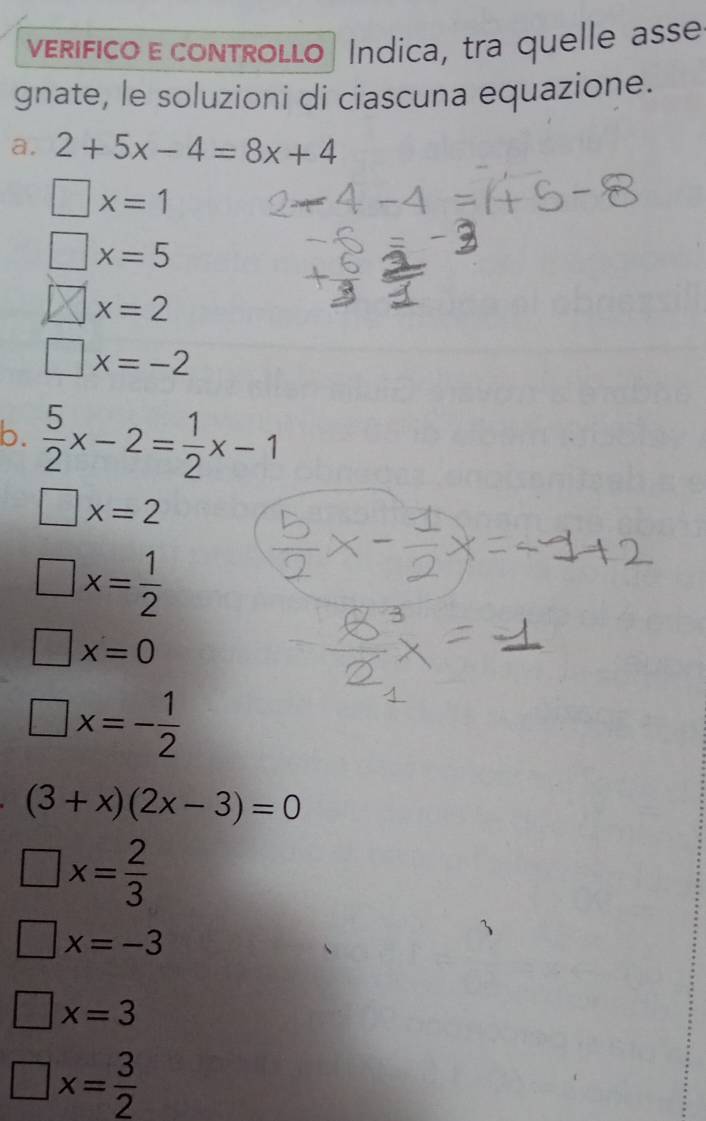 VERIFICO E CONTROLLO Indica, tra quelle asse-
gnate, le soluzioni di ciascuna equazione.
a. 2 + 5x − 4 = 8x + 4
x = 1
2 − 4 − 4 = 1 + 5 − 8
x = 5
x = 2
x = −2
b. 5/2 x − 2 = 1/2 x − 1
x = 2
5/2 x − 1/2 x = −1 + 2
x = 1/2
x = 0
x = −1/2
(3 + x)(2x − 3) = 0
x = 2/3
x = −3
x = 3
x = 3/2